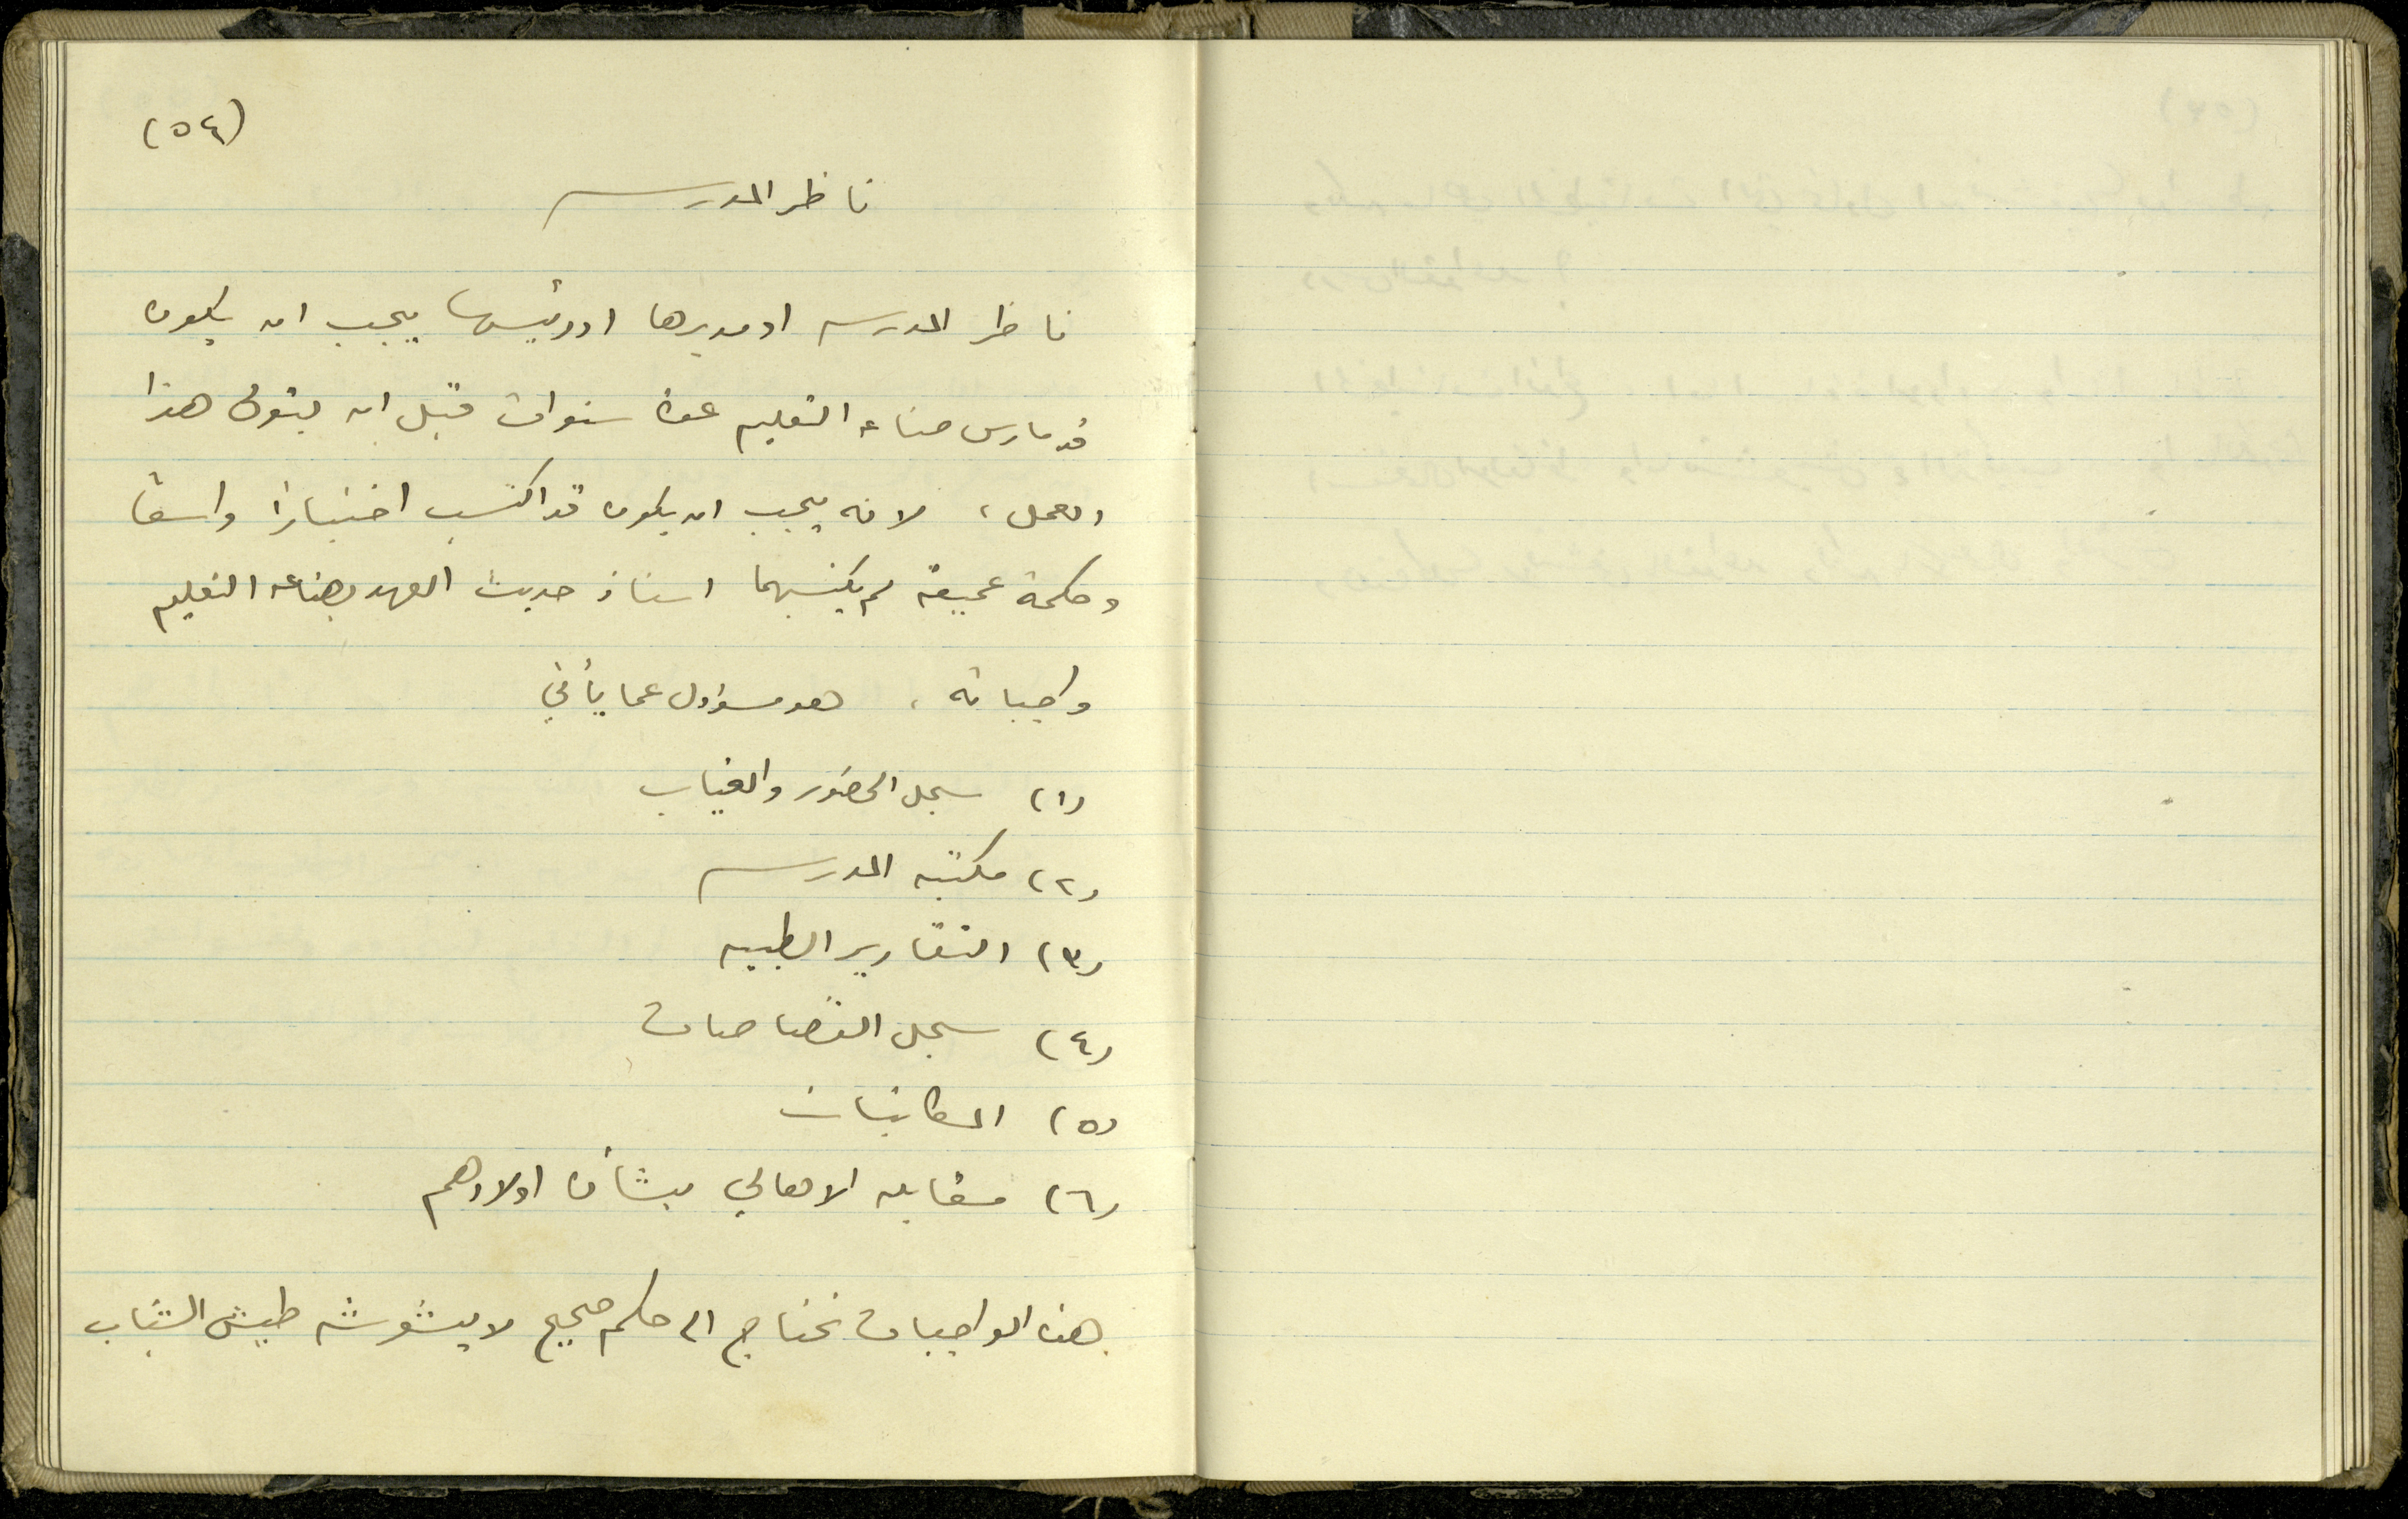 (٥٤)
ناظر المدرسه
ناظر المدرسه او مديرها او رئيسها يجب ان يكون
قد مارس صناعه التعليم عدة سنوات قبل ان يتولى هذا
العمل، لانه يجب ان يكون قد اكتسب اختبارًا واسعًا
وحكمة عميقة لم يكتسبهما استاذ حديث العهد بصناعه التعليم
واجباته، هو مسؤول عما يأتي
(١) سجل الحضور والغياب
(٢) مكتبه المدرسه
(٣) التقارير الطبيه
(٤) سجل القصاصات
(٥) المكاتبات
(٦) مقابله الاهالي بشأن اولادهم
هذه الواجبات تحتاج الى حكم صحيح لا يشوشه طيش الشباب